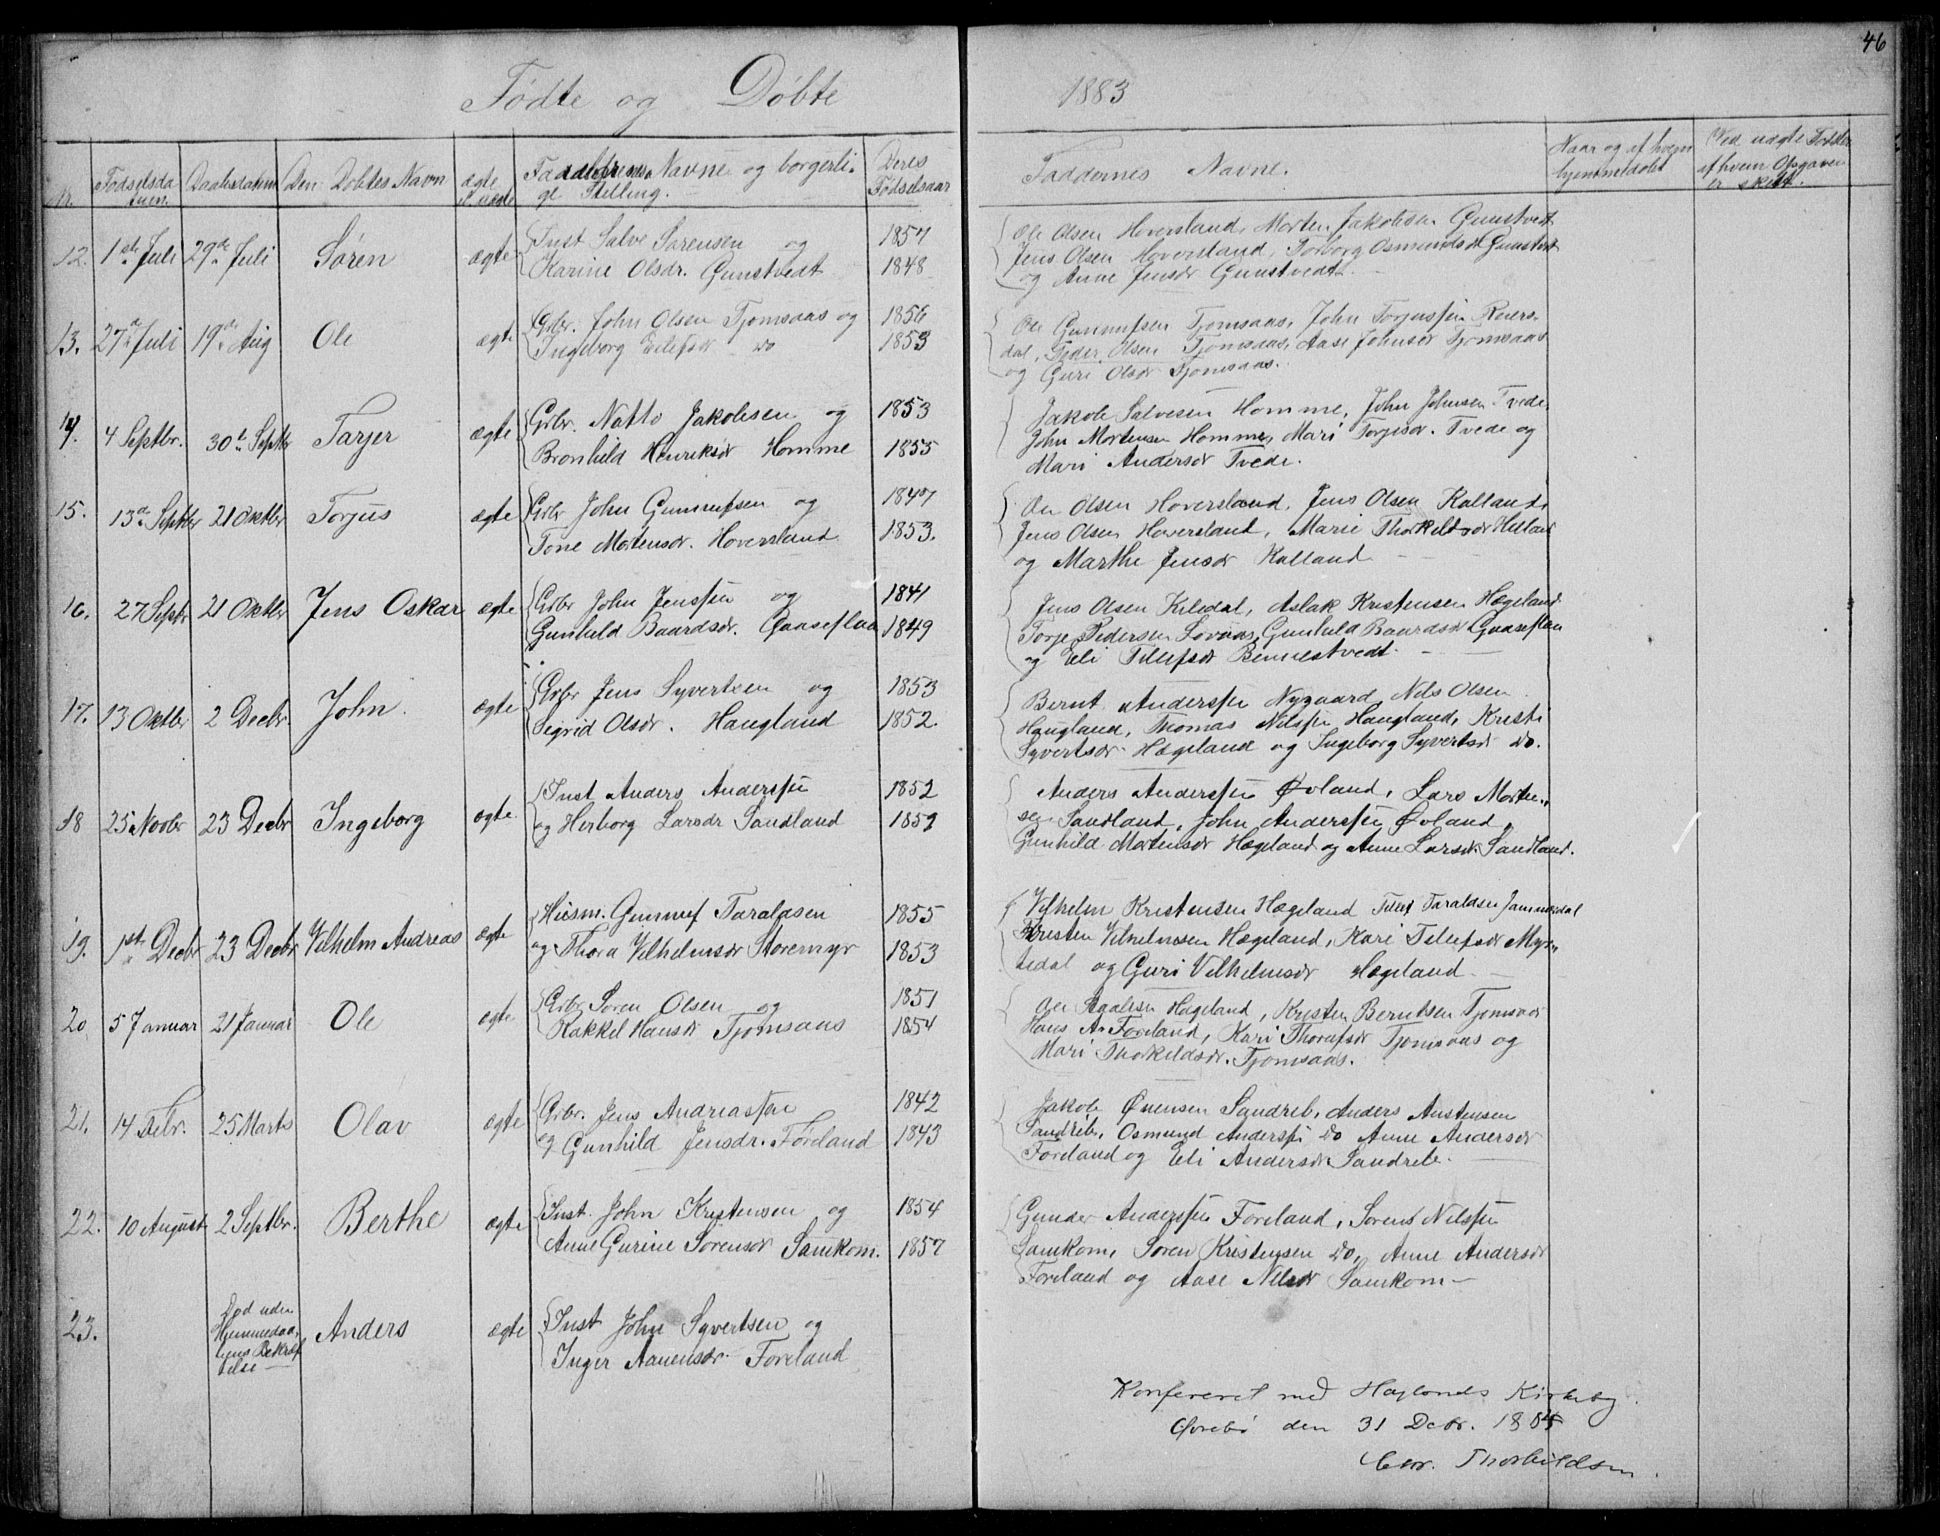 46
Fødte og Døbte 1883
Fødselsda Daabsdatum Den Døbtes Navn ægte Navne og borgerli- Deres Faddernes Navne. Naar og af hvem Ved uægte Fødsler
ge Stilling. Fødselsaar hjemmedøbt af hvem Opgaven
er skett.
12. 1ste Juli 29de Juli Søren ægte Inst Salve Sørensen og 1857 Ole Olsen Hoversland, Morten Jakobsen Gunstvedt
Karine Olsdr. Gunstvedt 1848 Jens Olsen Hoversland, Torborg Osmundsdr Gunstvedt
og Anne Jensdr Gunstvedt.
13. 27de Juli 19de Aug Ole ægte Grbr. John Olsen Tjomsaas og 1856 Ole Gunnufsen Tjomsaas, John Torjussen Reiers-
Ingeborg Eilefsdr do 1853 dal, Peder Olsen Tjomsaas, Aase Johnsdr Tjomsaas
og Guri Olsdr Tjomsaas.
14. 4 Septbr. 30te Septbr Tarjer ægte Grbr. Natto Jakobsen og 1853 Jakob Salvesen Homme, John Johnsen Tvede,
Bronhild Henriksdr Homme 1855 John Mortensen Homme, Mari Torjesdr. Tvede og
Mari Andersdr Tvede.
15. 13de Septbr 21 Oktbr Torjus ægte Grbr John Gunnufsen og 1847 Ole Olsen Hoversland, Jens Olsen Kalland,
Tone Mortensdr. Hoversland 1853. Jens Olsen Hoversland, Marie Thorkeldsdr
og Marthe Jensdr Kalland
16. 27 Septbr 21 Oktbr Jens Oskar ægte Grbr John Jenssen og 1841 Jens Olsen Kiledal, Aslak Kristensen Hægeland
Gunhild Baardsdr. Gaaseflaa 1849 Torje Pedersen Lovaas, Gunhild Baardsdr Gaaseflaa
og Eli Tellefsdr Bennestvedt.
17. 13 Oktbr 2 Decbr John. ægte Grbr Jens Syvertsen og 1853 Bernt Anderssen Nygaard, Nils Olsen
Sigrid Olsdr. Haugland 1852. Haugland, Thomas Nilssen Haugland, Kristi
Syvertsdr Hægeland og Ingeborg Syvertsdr do.
18 25 Novbr 23 Decbr Ingeborg ægte Inst Anders Anderssen 1852 Anders Anderssen Øvland, Lars Morten-
og Herborg Larsdr Sandland 1852 sen Sandland, John Anderssen Øvland,
Gunhild Mortensdr Hægeland og Anne Larsdr Sandland.
19. 1ste Decbr 23 Decbr Vilhelm Andreas ægte Husm. Gunnuf Taraldsen 1855 Vilhelm Kristensen Hægeland Tellef Taraldsen
og Thora Vilhelmsdr Storemyr 1853 Kristen Vilhelmsen Hægeland, Kari Tellefsdr
og Guri Vilhelmsdr Hægeland.
20 5 Januar 21 Januar Ole ægte Grbr Søren Olsen og 1851 Ole Hægeland, Kristen Berntsen Tjomsaas
Rakkel Hansdr Tjomsaas 1854 Hans A. Føreland, Kari Tjomsaas og
Mari Thorkeldsdr. Tjomsaas.
21. 14 Febr. 25 Marts Olav ægte Grbr. Jens Andreassen 1842 Jakob Øvensen Sandreb, Anders Austensen
og Gunhild Jensdr. Føreland 1843 Sandreb, Osmund Anderssen do Anne Andersdr
Føreland og Eli Andersdr Sandreb.
22. 10 August 2 Septbr. Berthe ægte Inst. John Kristensen og 1854 Gunder Anderssen Føreland, Søren Nilssen
Anne Gurine Sørensdr Samkom. 1857 Samkom, Søren Kristensen do, Anne Andersdr
Føreland og Aase Nilsdr Samkom
23. Død uden Hjemmedaa- bens Bekræf- telse Anders ægte Inst John Syvertsen og
Inger Aanensdr. Føreland
Konfereret med Hæglands Kirkebog.
Øvrebø den 31 Decbr. 1884
Chr. Thorkildsen.